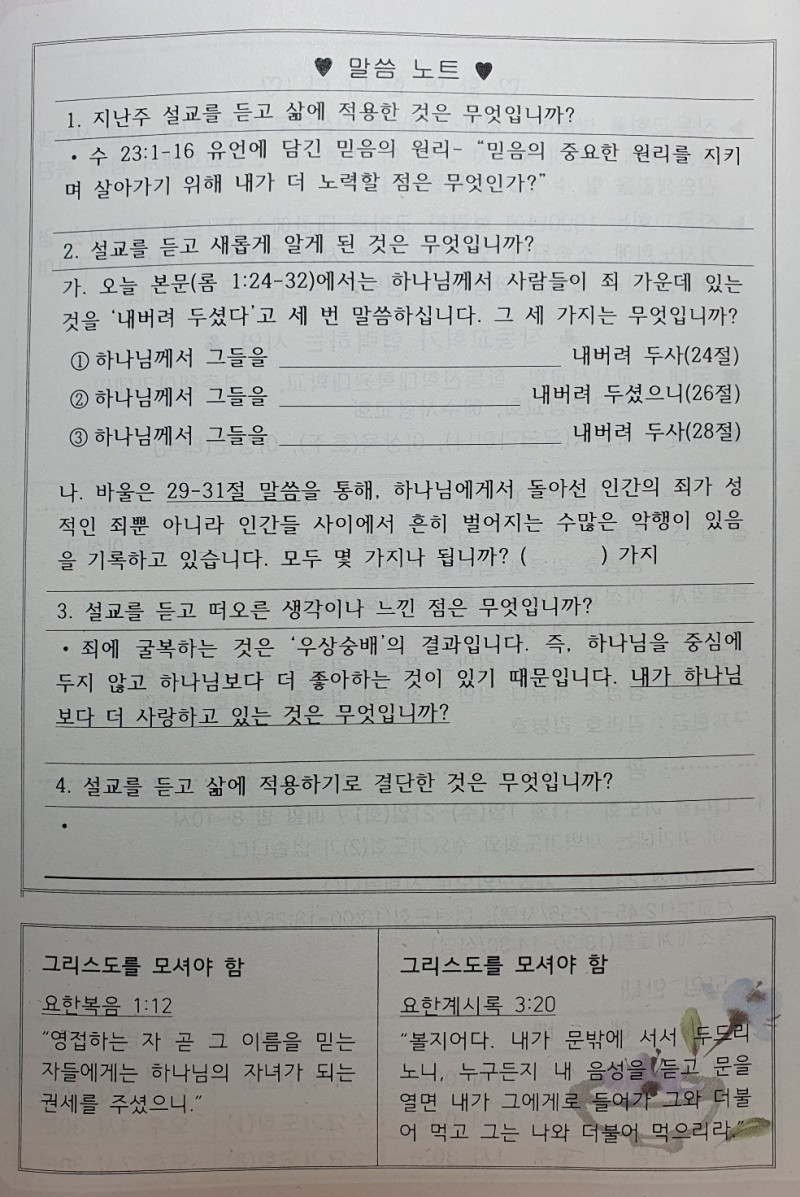 ♥ 말씀 노트 ♥
1. 지난주 설교를 듣고 삶에 적용한 것은 무엇입니까?
• 수 23:1-16 유언에 담긴 믿음의 원리- “믿음의 중요한 원리를 지키
며 살아가기 위해 내가 더 노력할 점은 무엇인가?”
2. 설교를 듣고 새롭게 알게 된 것은 무엇입니까?
가. 오늘 본문(롬 1:24-32)에서는 하나님께서 사람들이 죄 가운데 있는
것을 ‘내버려 두셨다’고 세 번 말씀하십니다. 그 세 가지는 무엇입니까?
① 하나님께서 그들을 ______________________ 내버려 두사(24절)
② 하나님께서 그들을 ____________________ 내버려 두셨으니(26절)
③ 하나님께서 그들을 ______________________ 내버려 두사(28절)
나. 바울은 29-31절 말씀을 통해, 하나님에게서 돌아선 인간의 죄가 성
적인 죄뿐 아니라 인간들 사이에서 흔히 벌어지는 수많은 악행이 있음
을 기록하고 있습니다. 모두 몇 가지나 됩니까? (        ) 가지
3. 설교를 듣고 떠오른 생각이나 느낀 점은 무엇입니까?
• 죄에 굴복하는 것은 ‘우상숭배’의 결과입니다. 즉, 하나님을 중심에
두지 않고 하나님보다 더 좋아하는 것이 있기 때문입니다. 내가 하나님
보다 더 사랑하고 있는 것은 무엇입니까?
4. 설교를 듣고 삶에 적용하기로 결단한 것은 무엇입니까?
•
그리스도를 모셔야 함
요한복음 1:12
“영접하는 자 곧 그 이름을 믿는
자들에게는 하나님의 자녀가 되는
권세를 주셨으니.”
그리스도를 모셔야 함
요한계시록 3:20
“볼지어다. 내가 문밖에 서서 두드리
노니, 누구든지 내 음성을 듣고 문을
열면 내가 그에게로 들어가 그와 더불
어 먹고 그는 나와 더불어 먹으리라.”